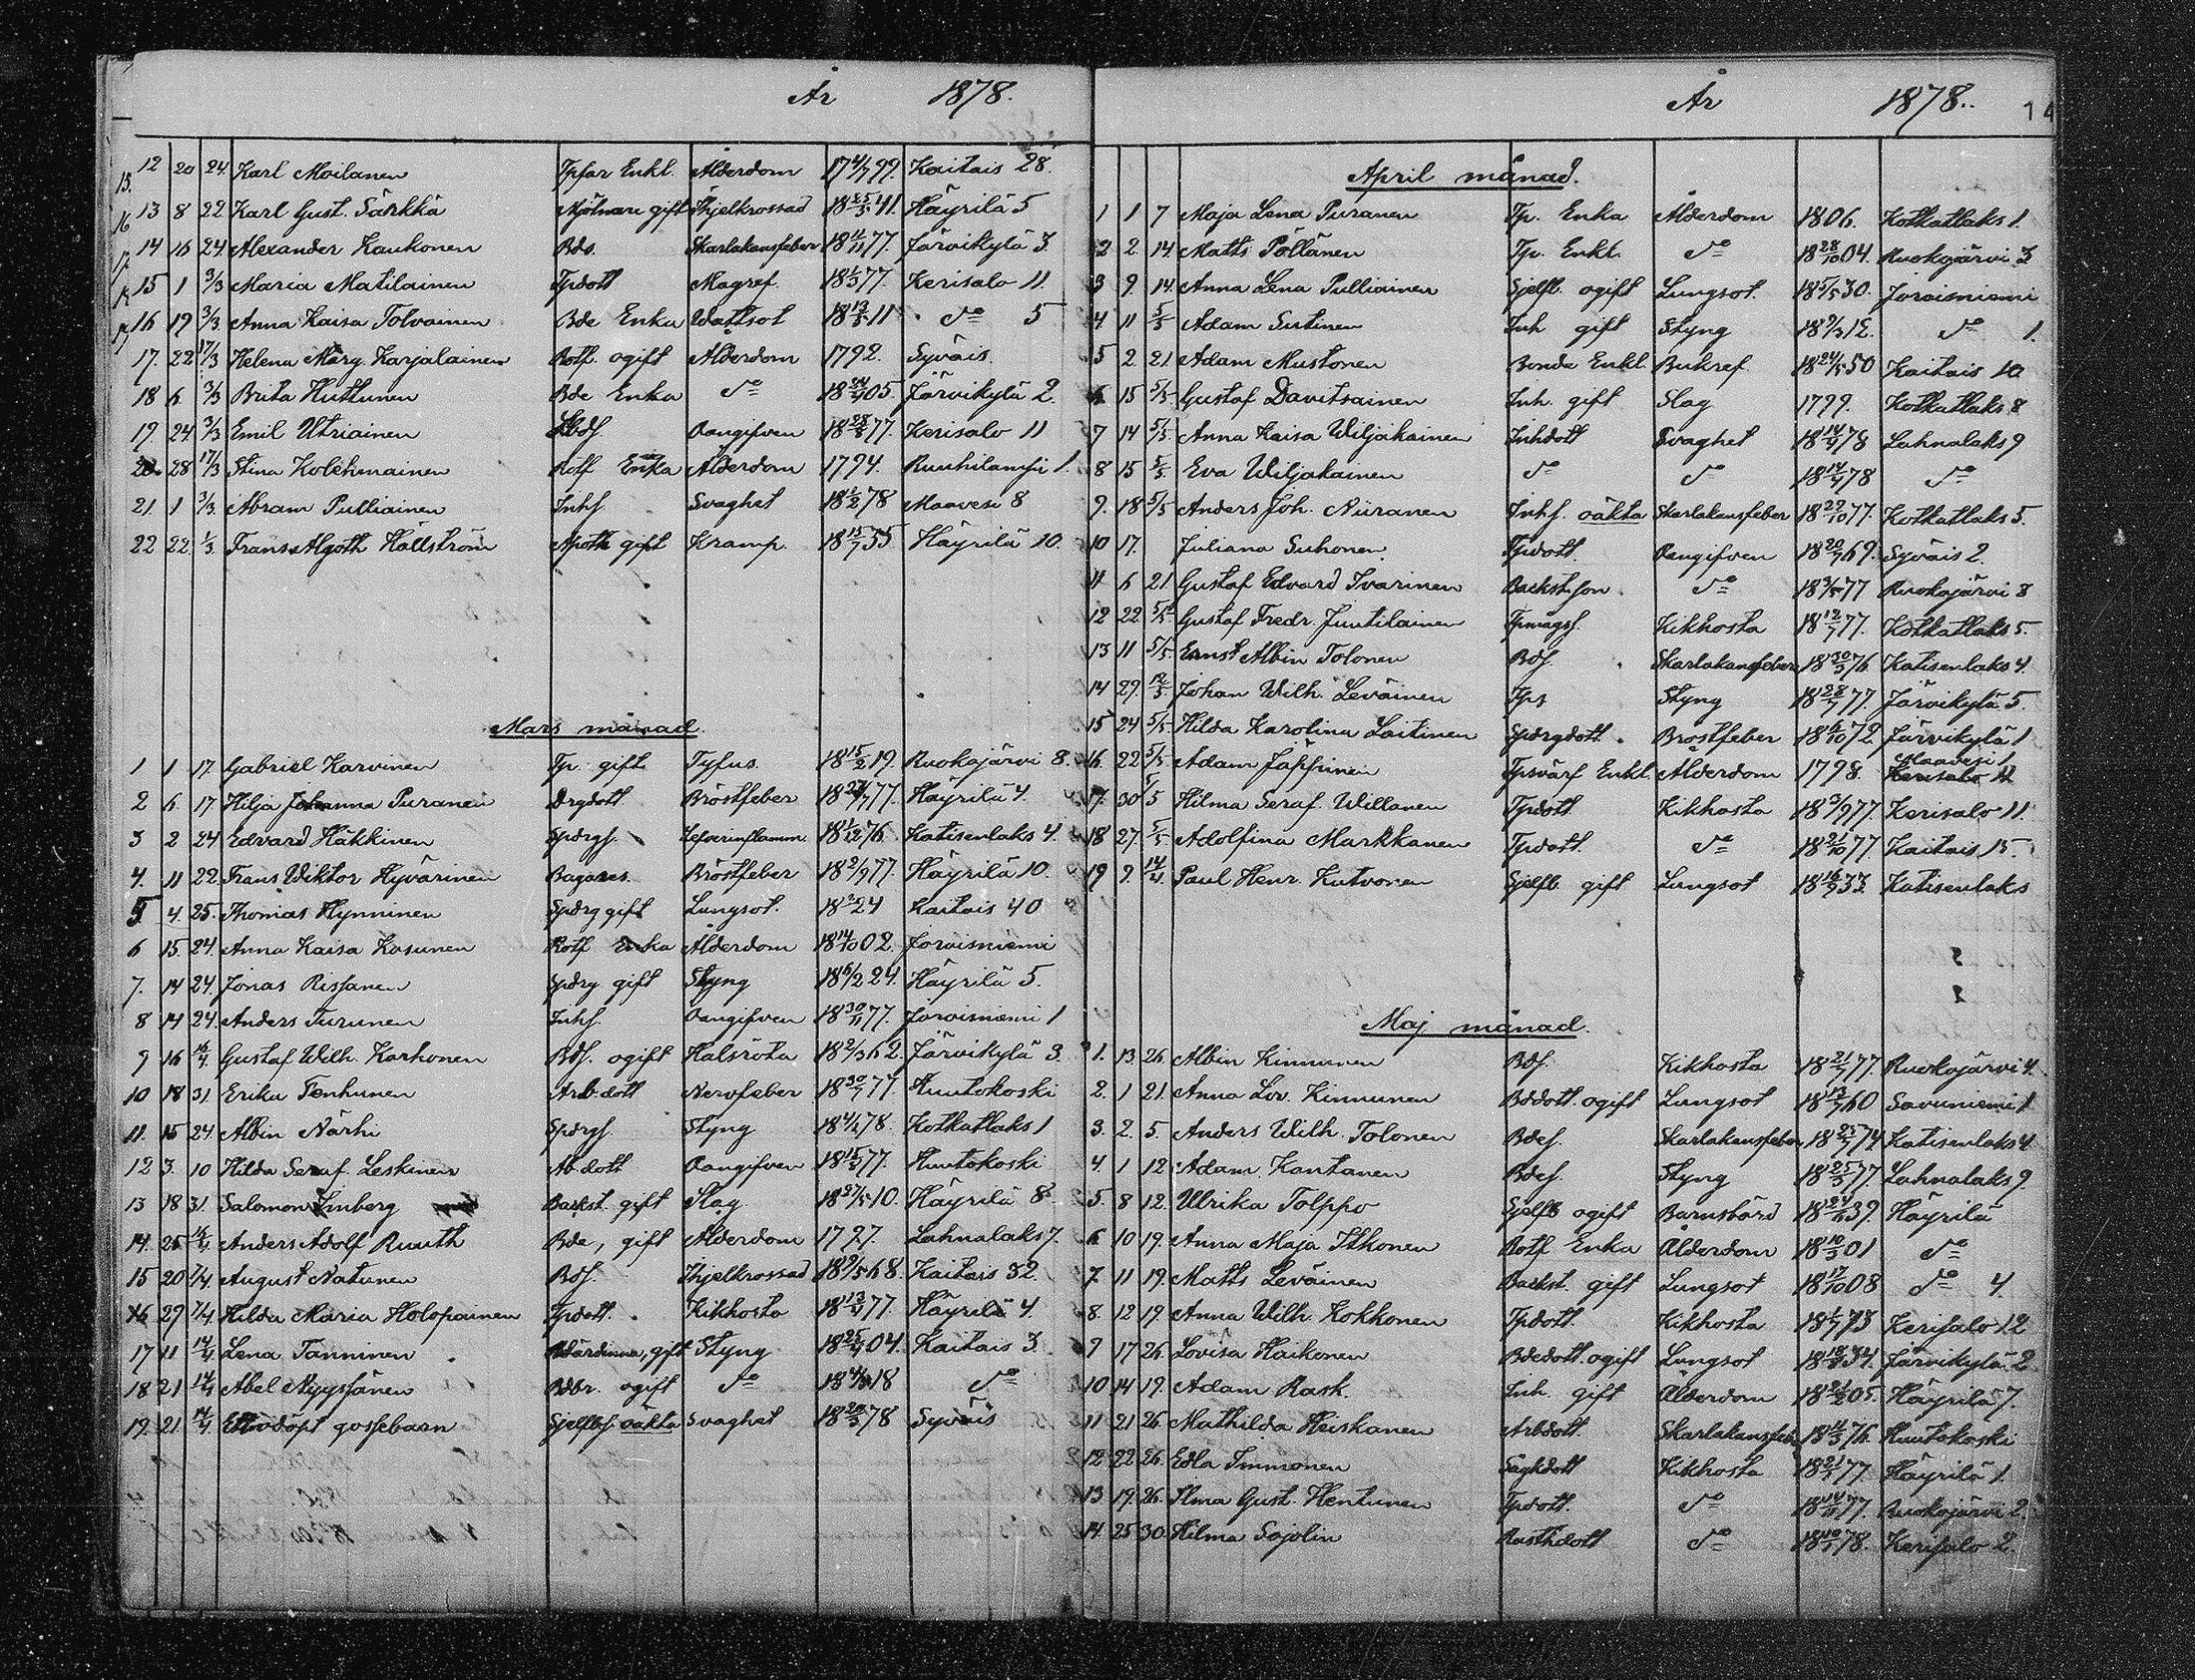 År 1878.
12 20 24. Karl Moilanen Tpfar Enkl. Ålderdom 17 4/7 99. Kaitais 28.
13 8 22 Karl Gust. Särkkä Mjölnare gift Ihjelkrossad 18 25/5 41. Häyrilä 5
14 16 24. Alexander Kaukonen Bds. Skarlakansfeber 18 11/11 77. Järvikylä 3.
15 1 3/3 Maria Matilainen Tpdott Magref. 18 1/3 77. Kerisalo 11.
16 19 3/3 Anna Kaisa Tolvainen Bde Enka Wattsot 18 13/5 11 do 5
17. 22 17/3 Helena Marg. Karjalainen Rotf. ogift Ålderdom 1792. Syväis.
18 6 3/3 Brita Huttunen Bde Enka do 18 05. Järvikylä 2.
19. 24 3/3 Emil Utriainen Oangifven 18 77. Kerisalo 11
20. 28 17/3 Stina Kolehmainen Rotf Enka Ålderdom 1794. Ruuhilampi 1.
21. 1 3/3. Abram Pulliainen Inhs. Svaghet 18 1/2 78 Maavesi 8
22 22 1/3. Frans Algoth Hällström Apoth gift Kramp. 18 15/7 35 Häyrilä 10.
Mars månad.
1 1 17. Gabriel Karvinen Tp. gift Tyfus. 18 15/2 19. Ruokojärvi 8.
2 6. 17 Hilja Johanna Puranen Drgdott Bröstfeber 18 77. Häyrilä 4.
3 2 24 Edvard Häkkinen Spdrgs. Lefverinflamm. 18 1/12 76. Katisenlaks 4.
4. 11 22. Frans Wiktor Hyvärinen Bagares. Bröstfeber 18 2/9 77. Häyrilä 10.
5 4. 25. Thomas Hynninen Spdrg gift Lungsot. 18 24 Kaitais 40
6 15. 24. Anna Kaisa Kosunen Rotf Enka Ålderdom 18 14/10 02. Joroisniemi
7. 14 24. Jonas Rissanen Spdrg gift Styng 18 6/2 24. Häyrilä 5.
8 14 24. Anders Turunen Inhs. Oangifven 18 30/11 77. Joroisniemi 1
9 16 14/4 Gustaf Wilh. Karhonen Bds. ogift Halsröta 18 2/3 62. Järvikylä 3.
10 18 31. Erika Tenhunen Arb.dott Nervfeber 18 30/7 77. Huutokoski
11. 15 24. Albin Närhi Spdrgs. Styng 18 4/1 78. Kotkatlaks 1
12 3. 10 Hilda Seraf. Leskinen Ab.dott Oangifven 18 77. Huutokoski
13 18 31. Salomon Linberg Backst. gift Slag 18 27/5 10. Häyrilä 8.
14. 25 14/4 Anders Adolf Ruuth Bde, gift Ålderdom 1797. Lahnalaks 7.
15 20 7/4. August Natunen Bds. Ihjelkrossad 18 9/5 68. Kaitais 32.
16 27 7/4 Hilda Maria Holopainen Tpdott. Kikhosta 18 77. Häyrilä 4.
17 11 14/4 Lena Tanninen gift Styng 18 04. Kaitais 3.
18 21 14/4 Abel Nyyssänen Bdbr. ogift do 18 18 do
19. 21 14/4. Ettnödöpt gossebarn Sjelfbs. oäkta Svaghet 18 20/3 78 Syväis
År 1878.
April månad.
1 1 7 Maja Lena Puranen Tp. Enka Ålderdom 1806. Kotkatlaks 1.
2 2. 14. Matts Pöllänen Tp. Enkl. do 18 28/10 04. Ruokojärvi 3
3 9. 14. Anna Lena Pulliainen Sjelfb. ogift Lungsot. 18 5/5 30. Joroisniemi
4. 11 5/5 Adam Sutinen Inh gift Styng 18 9/3 12. do 1.
5 2. 21. Adam Mustonen Bonde Enkl. Bukref. 18 50 Kaitais 10
6 15 5/5. Gustaf Davitsainen Inh. gift Slag 1799. Kotkatlaks 8
7 14 5/5. Anna Kaisa Wiljakainen Inhdott Svaghet 18 78 Lahnalaks 9
8 15 5/5. Eva Wiljakainen do do 18 78 do
9. 18 5/5 Anders Joh. Niiranen Inhs. oäkta Skarlakansfeber 18 29/10 77. Kotkatlaks 5.
10 17. Juliana Suhonen Tpdott. Oangifven 18 20/7 69. Syväis 2.
11 6 21 Gustaf Edvard Ivarinen Backst.son do 18 3/5 77 Ruokojärvi 8
12 22 5/5 Gustaf Fredr. Juutilainen Tpmågs. Kikhosta 18 12/7 77. Kotkatlaks 5.
13 11 5/5 Ernst Albin Tolonen Bds. Skarlakansfeber 18 30/3 76 Katisenlaks 4.
14 29. 12/5. Johan Wilh. Leväinen Tps Styng 18 77. Järvikylä 5.
15 24 5/5. Hilda Karolina Laitinen Spdrgdott. Bröstfeber 18 72 Järvikylä 1
16. 22 5/5 Adam Jäppinen Tpsvärf Enkl. Ålderdom 1798. Maavesi 1
17. 30 5/5 Hilma Seraf. Willanen Tpdott. Kikhosta 18 3/9 77. Kerisalo 11.
18 27. 5/5 Adolfina Markkanen Tpdott. do 18 21/10 77. Kaitais 15.
19 9. 14/4. Paul Henr. Kutvonen Sjelfb. gift Lungsot 18 16/9 33. Katisenlaks
Maj månad.
1. 13 26. Albin Kinnunen Bds. Kikhosta 18 21/7 77. Ruokojärvi 4.
2. 1 21. Anna Lov. Kinnunen Bddott. ogift Lungsot 18 13/7 60 Savuniemi 1
3. 2. 5. Anders Wilh. Tolonen Bdes. Skarlakansfeber 18 74 Katisenlaks 4
4. 1 12. Adam Kantanen Bdes. Styng 18 25/3 77. Lahnalaks 9
5. 8 12. Ulrika Tolppo Sjelfb ogift Barnsbörd 18 39. Häyrilä
6. 10 19. Anna Maja Itkonen Rotf Enka Ålderdom 18 01 do
7. 11 19. Matts Leväinen Backst. gift Lungsot 18 17/10 08 do 4.
8. 12 19. Anna Wilh. Kokkonen Tpdott. Kikhosta 18 1/7 73 Kerisalo 12
9 17 26. Lovisa Haikonen Bdedott. ogift Lungsot 18 34. Järvikylä 2.
10 14 19. Adam Rask. Inh. gift Ålderdom 18 05. Häyrilä 7.
11 21 26. Mathilda Heiskanen Arbdott. Skarlakansfeb. 18 14/3 76. Huutokoski
12 22 26. Edla Immonen Kikhosta 18 77. Häyrilä 1.
13 19. 26. Ilma Gust. Hentunen Tpdott. do 18 77. Ruokojärvi 2.
14. 25 30. Hilma Sojolin do 18 78. Kerisalo 2.